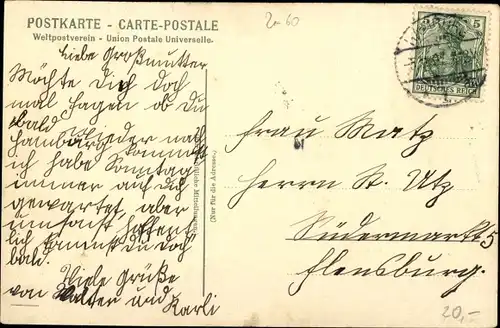 POSTKARTE - CARTE-POSTALE
Weltpostverein - Union Postale Universelle.
Liebe Großmutter
Möchte Dich doch
mal fragen ob Du
bald wieder nach
Hamburg kommst
ich habe Sonntag
immer auf dich
gewartet, aber
umsonst hoffent-
lich kommst Du doch
bald.
Viele Grüße
von Walter und Karli
(Nur für die Adresse.)
Frau Matz
Herrn St. Utz
Südermarkt 5
Flensburg.
5
DEUTSCHES REICH
20,-